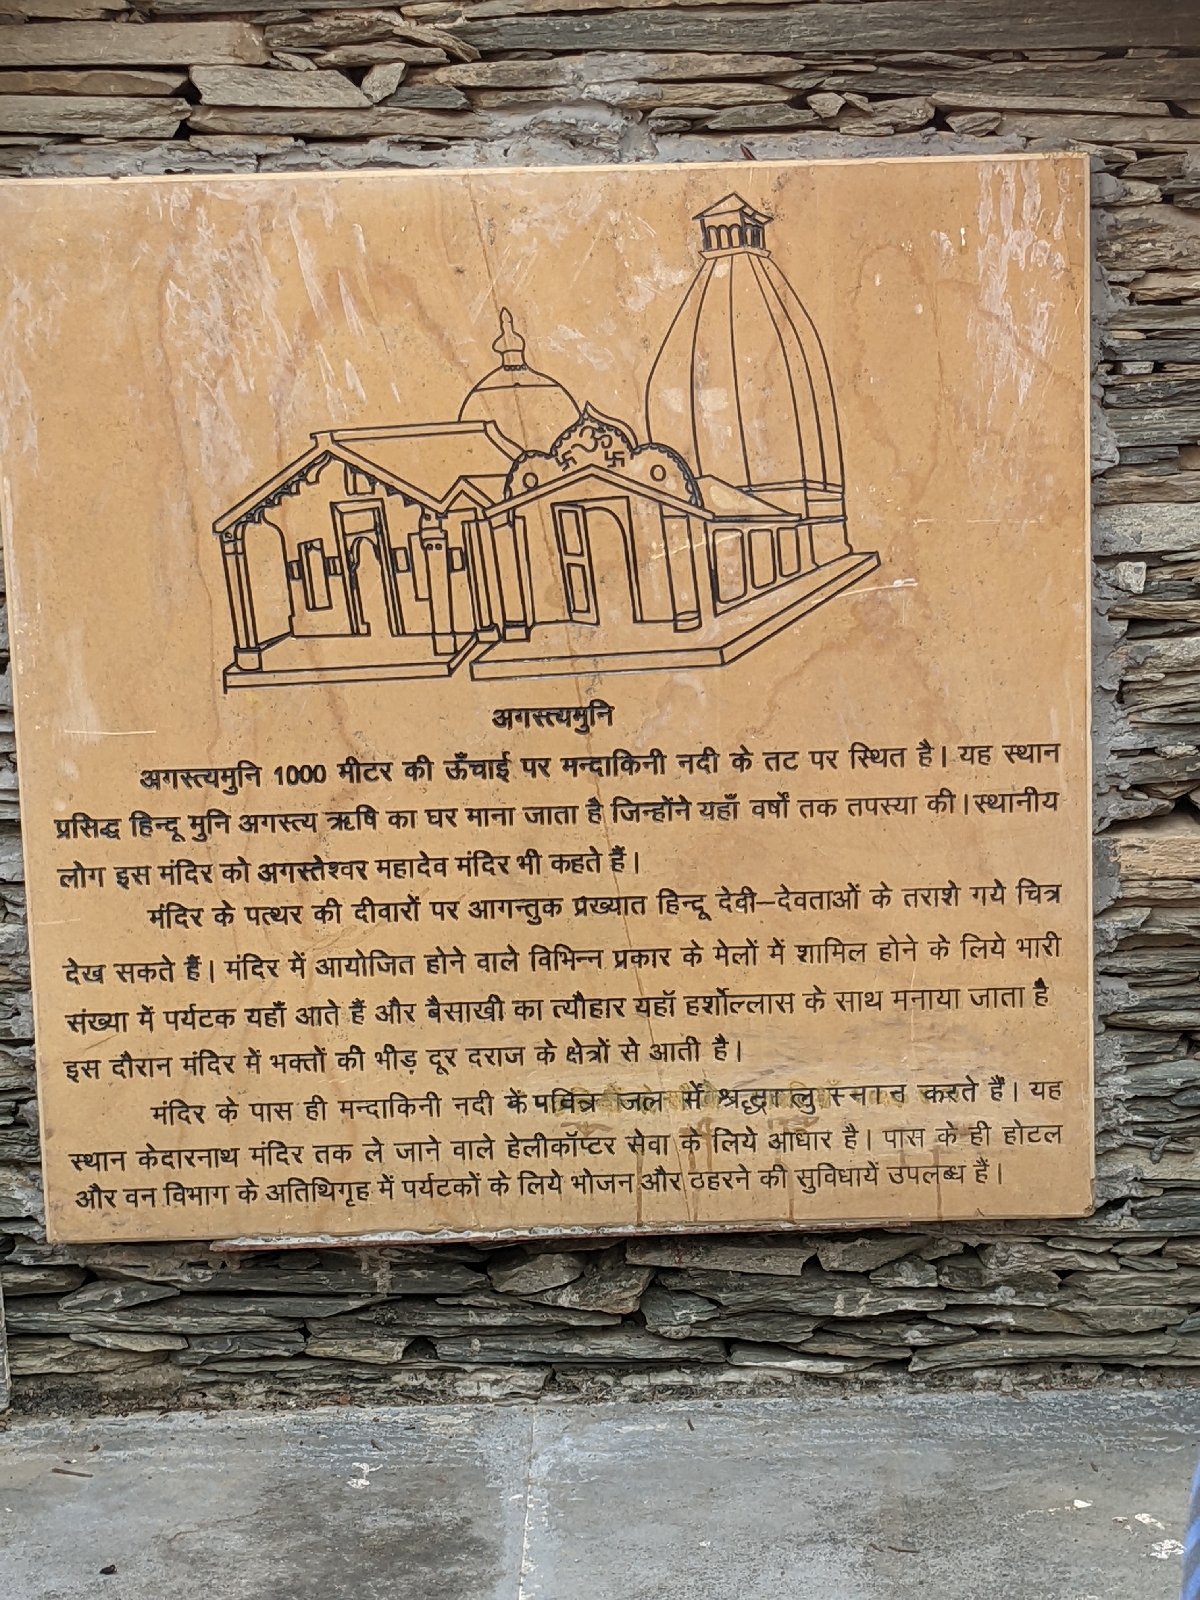 ॐ
अगस्त्यमुनि
अगस्त्यमुनि 1000 मीटर की ऊँचाई पर मन्दाकिनी नदी के तट पर स्थित है। यह स्थान
प्रसिद्ध हिन्दू मुनि अगस्त्य ऋषि का घर माना जाता है जिन्होंने यहाँ वर्षों तक तपस्या की। स्थानीय
लोग इस मंदिर को अगस्तेश्वर महादेव मंदिर भी कहते हैं।
मंदिर के पत्थर की दीवारों पर आगन्तुक प्रख्यात हिन्दू देवी–देवताओं के तराशे गये चित्र
देख सकते हैं। मंदिर में आयोजित होने वाले विभिन्न प्रकार के मेलों में शामिल होने के लिये भारी
संख्या में पर्यटक यहाँ आते हैं और बैसाखी का त्यौहार यहॉ हर्शोल्लास के साथ मनाया जाता है
इस दौरान मंदिर में भक्तों की भीड़ दूर दराज के क्षेत्रों से आती है।
मंदिर के पास ही मन्दाकिनी नदी के पवित्र जल में श्रद्धालु स्नान करते हैं। यह
स्थान केदारनाथ मंदिर तक ले जाने वाले हेलीकॉप्टर सेवा के लिये आधार है। पास के ही होटल
और वन विभाग के अतिथिगृह में पर्यटकों के लिये भोजन और ठहरने की सुविधायें उपलब्ध हैं।